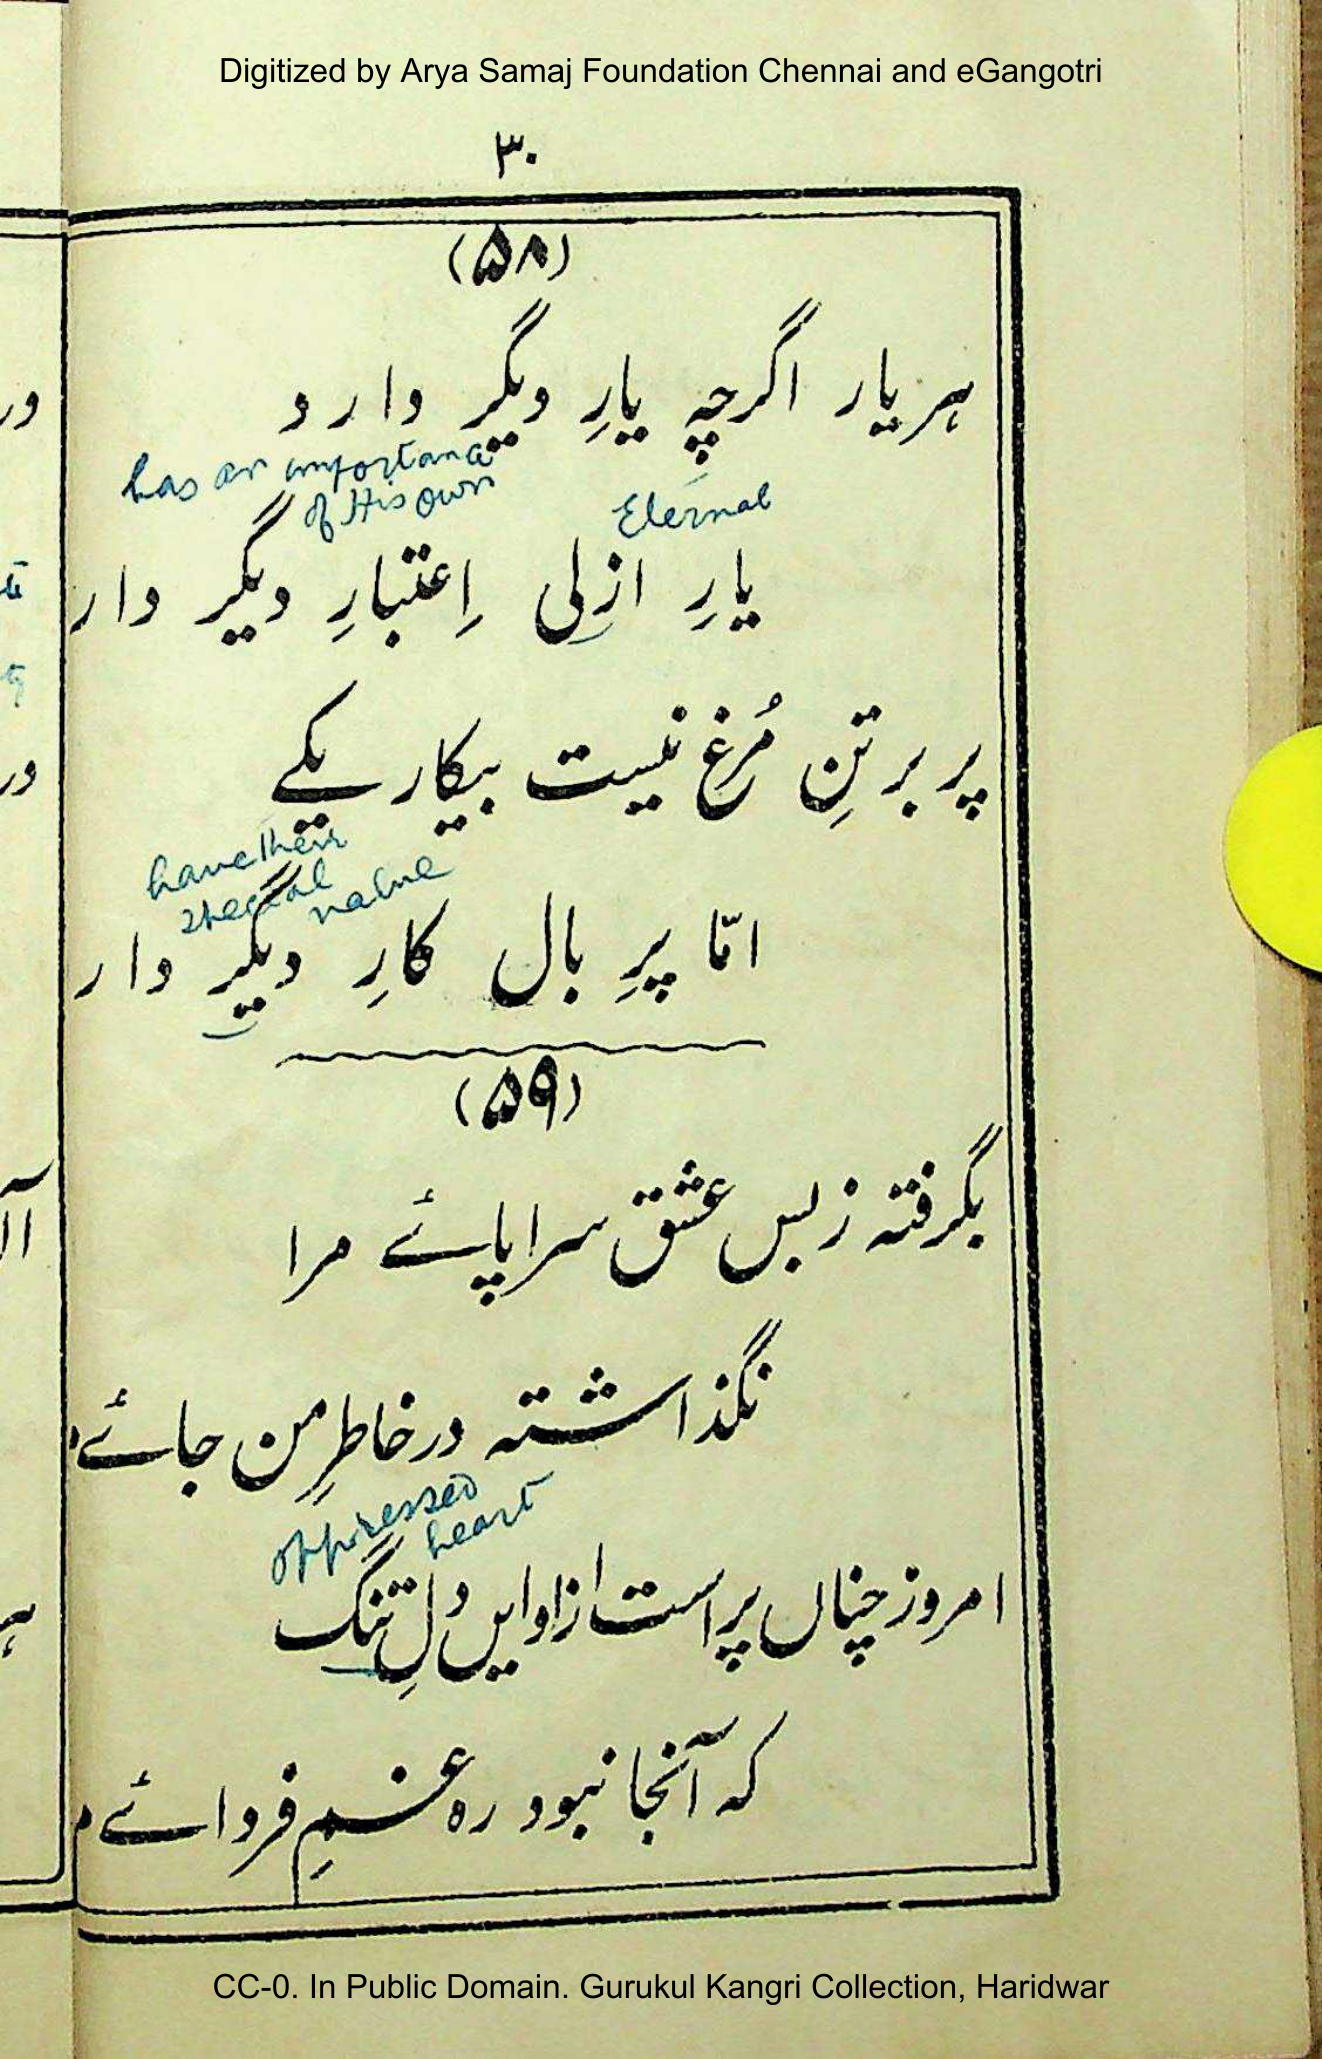 Digitized by Arya Samaj Foundation Chennai and eGangotri
۳۰
(۵۸)
ہر یار اگرچہ یارِ دیگر دارد
has an importance
of His own
Eternal
یارِ ازلی اِعتبارِ دیگر دار
پر بر تنِ مُرغ نیست بیکار یکے
have their
special value
امّا پرِ بال کارِ دیگر دار
(۵۹)
بگرفتہ زبس عشق سراپائے مرا
نگذاشتہ در خاطرِ من جائے
oppressed
heart
امروز چناں پر است از او ایں دلِ تنگ
کہ آنجا نبود رہ غمِ فردائے
CC-0. In Public Domain. Gurukul Kangri Collection, Haridwar